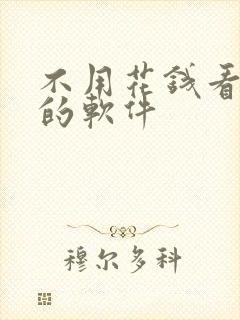 不用花錢看
的軟件
穆尔多科